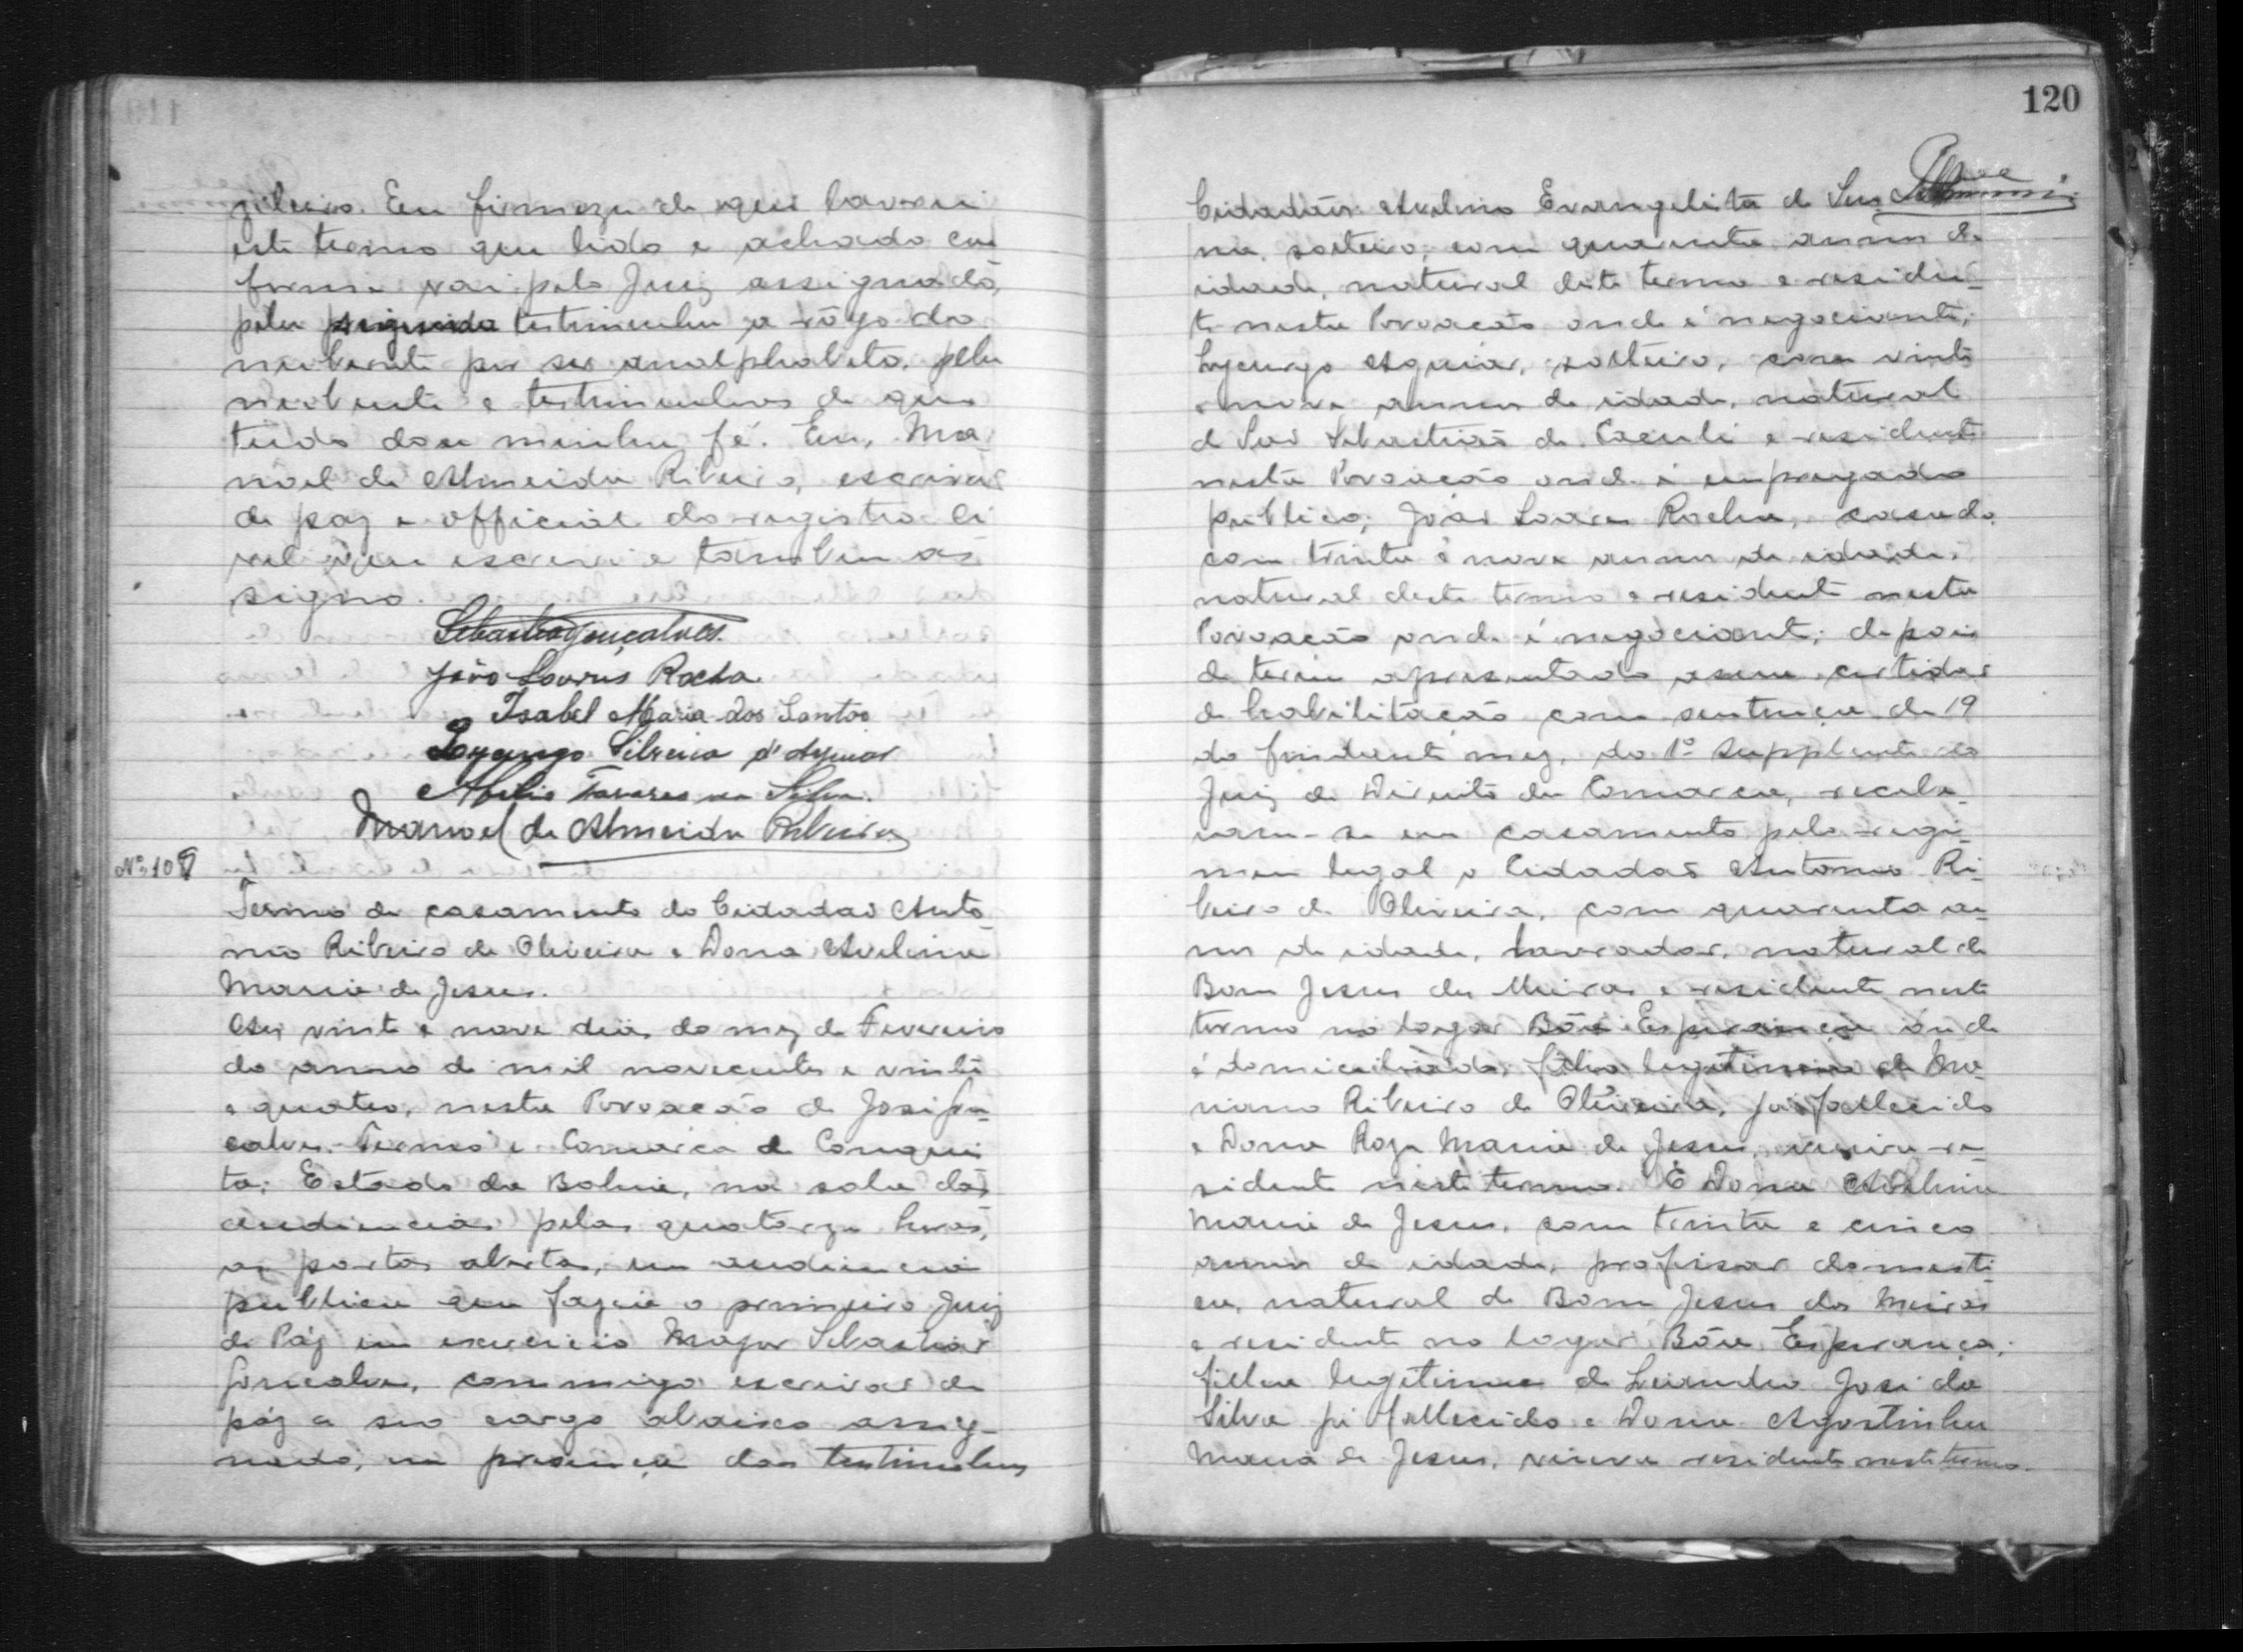 Em firmeza de que lavrei
este termo que lido e achado con
forme vai pelo Juiz assignado,
pela testimunha a rôgo do
nubente por ser analphabeto, pela
nubente e testimunhas do que
tudo dou minha fé. Eu, Ma
noel de Almeida Ribeiro, escrivão
de paz e official do registro ci
vil que escrevi e tambem as
signo.
Sebastião Gonçalves.
João Soares Rocha
Isabel Maria dos Santos
Lycurgo Silveira d'Aguiar
Abilio Tavares da Silva.
Manoel de Almeida Ribeiro
Nº 109
Termo de casamento do Cidadão Anto
nio Ribeiro de Oliveira e Dona Avelina
Maria de Jesus.
Aos vinte e nove dias do mez de Fevereiro
do anno de mil novecentos e vinte
e quatro, nesta Povoação de José Gon
calves. Termo e Comarca de Conquis
ta, Estado da Bahia, na sala das
audiencias pelas quatorze horas,
as portas abertas, em audiencia
publica que fazia o primeiro Juiz
de Páz em exercicio Major Sebastião
Goncalves, commigo escrivão de
páz a seu cargo abaixo assig-
nado, na presença das testimunhas
120
Cidadãos Avelino Evangelista de Sen
na, solteiro, com quarenta annos de
idade, natural deste termo e residen-
te nesta Povoação onde é negociante;
Lycurgo Aguiar, solteiro, com vinte
e nove annos de idade, natural
de São Sebastião do Caculé e residente
nesta Povoação onde é empregado
publico; José Soares Rocha, casado,
com trinta e nove annos de idade,
natural deste termo e residente nesta
Povoação onde é negociante; depois
de terem apresentado a certidão
de habilitação com sentença de 19
do fluente mez, do 1º Supplente do
Juiz de Direito da Comarca, recebe-
ram-se em casamento pelo regi-
men legal o Cidadão Antonio Ri-
beiro de Oliveira, com quarenta an-
nos de idade, lavrador, natural de
Bom Jesus dos Meiras e residente neste
termo no logar Bôa Esperança onde
é domiciliado, filho legitimo de
Ribeiro de Oliveira, já fallecido
e Dona Roza Maria de Jesus, viuva re-
sidente neste termo. E Dona Avelina
Maria de Jesus, com trinta e cinco
annos de idade, profissão domesti-
ca, natural de Bom Jesus dos Meiras
e residente no logar Bôa Esperança,
filha legitima de Leandro José da
Silva já fallecido e Dona Agostinha
Maria de Jesus, viuva residente neste termo.